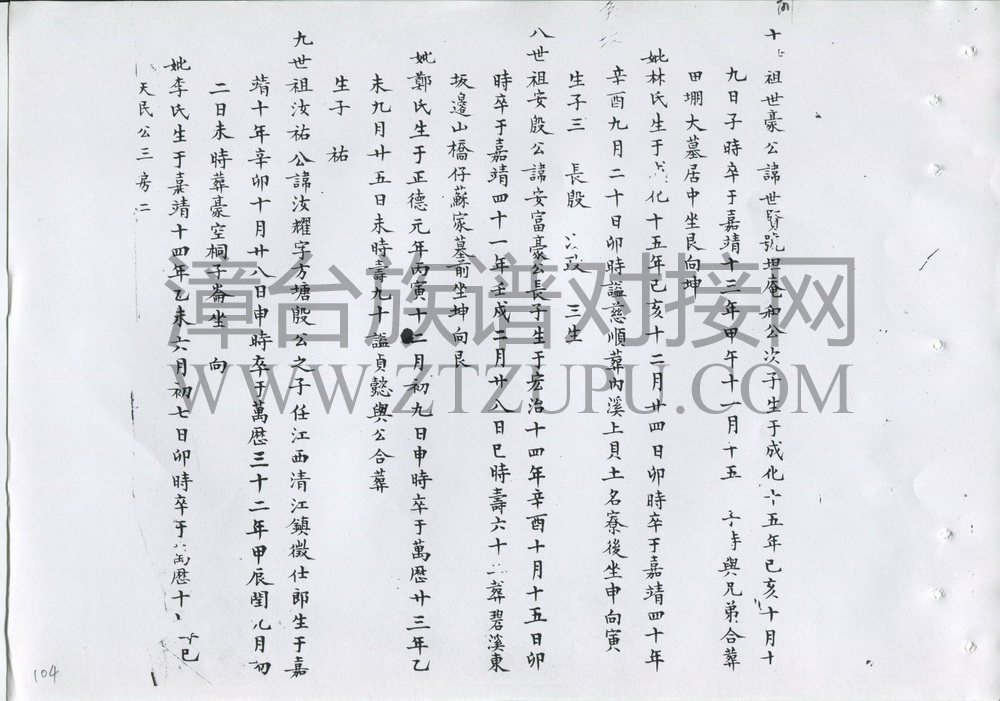 祖世豪公諱世賢號坦庵和公次子生于成化十五年己亥十月十
九日子時卒于嘉靖十三年甲午十一月十五 與兄弟合葬
田堋大墓居中坐艮向坤
妣林氏生于成化十五年己亥十二月廿四日卯時卒于嘉靖四十年
辛酉九月二十日卯時謚慈順葬內溪上貝土名寮後坐申向寅
生子三 長殷 次政 三生
八世祖安殷公諱安富豪公長子生于宏治十四年辛酉十月十五日卯
時卒于嘉靖四十一年壬戌二月廿八日巳時壽六十二葬碧溪東
坂邊山橋仔蘇家墓前坐坤向艮
妣鄭氏生于正德元年丙寅十二月初九日申時卒于萬歷廿三年乙
未九月廿五日未時壽九十謚貞懿與公合葬
生子 祐
九世祖汝祐公諱汝耀字方塘殷公之子任江西清江鎮徵仕郎生于嘉
靖十年辛卯十月廿八日申時卒于萬歷三十二年甲辰閏九月初
二日未時葬豪空桐子崙坐 向
妣李氏生于嘉靖十四年乙未六月初七日卯時卒于萬歷十
天民公三房二
104
漳台族谱对接网
WWW.ZTZUPU.COM